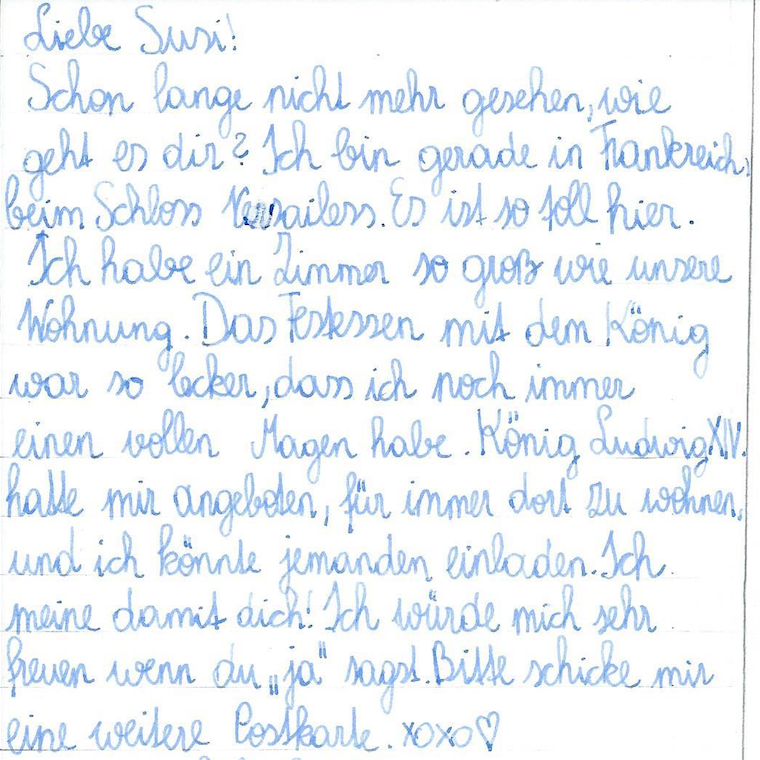 Liebe Susi!
Schon lange nicht mehr gesehen, wie
geht es dir? Ich bin gerade in Frankreich,
beim Schloss Versailess. Es ist so toll hier.
Ich habe ein Zimmer so groß wie unsere
Wohnung. Das Festessen mit dem König
war so lecker, dass ich noch immer
einen vollen Magen habe. König Ludwig XIV.
hatte mir angeboten, für immer dort zu wohnen,
und ich könnte jemanden einladen. Ich
meine damit dich! Ich würde mich sehr
freuen wenn du „ja" sagst. Bitte schicke mir
eine weitere Postkarte. xoxo♡